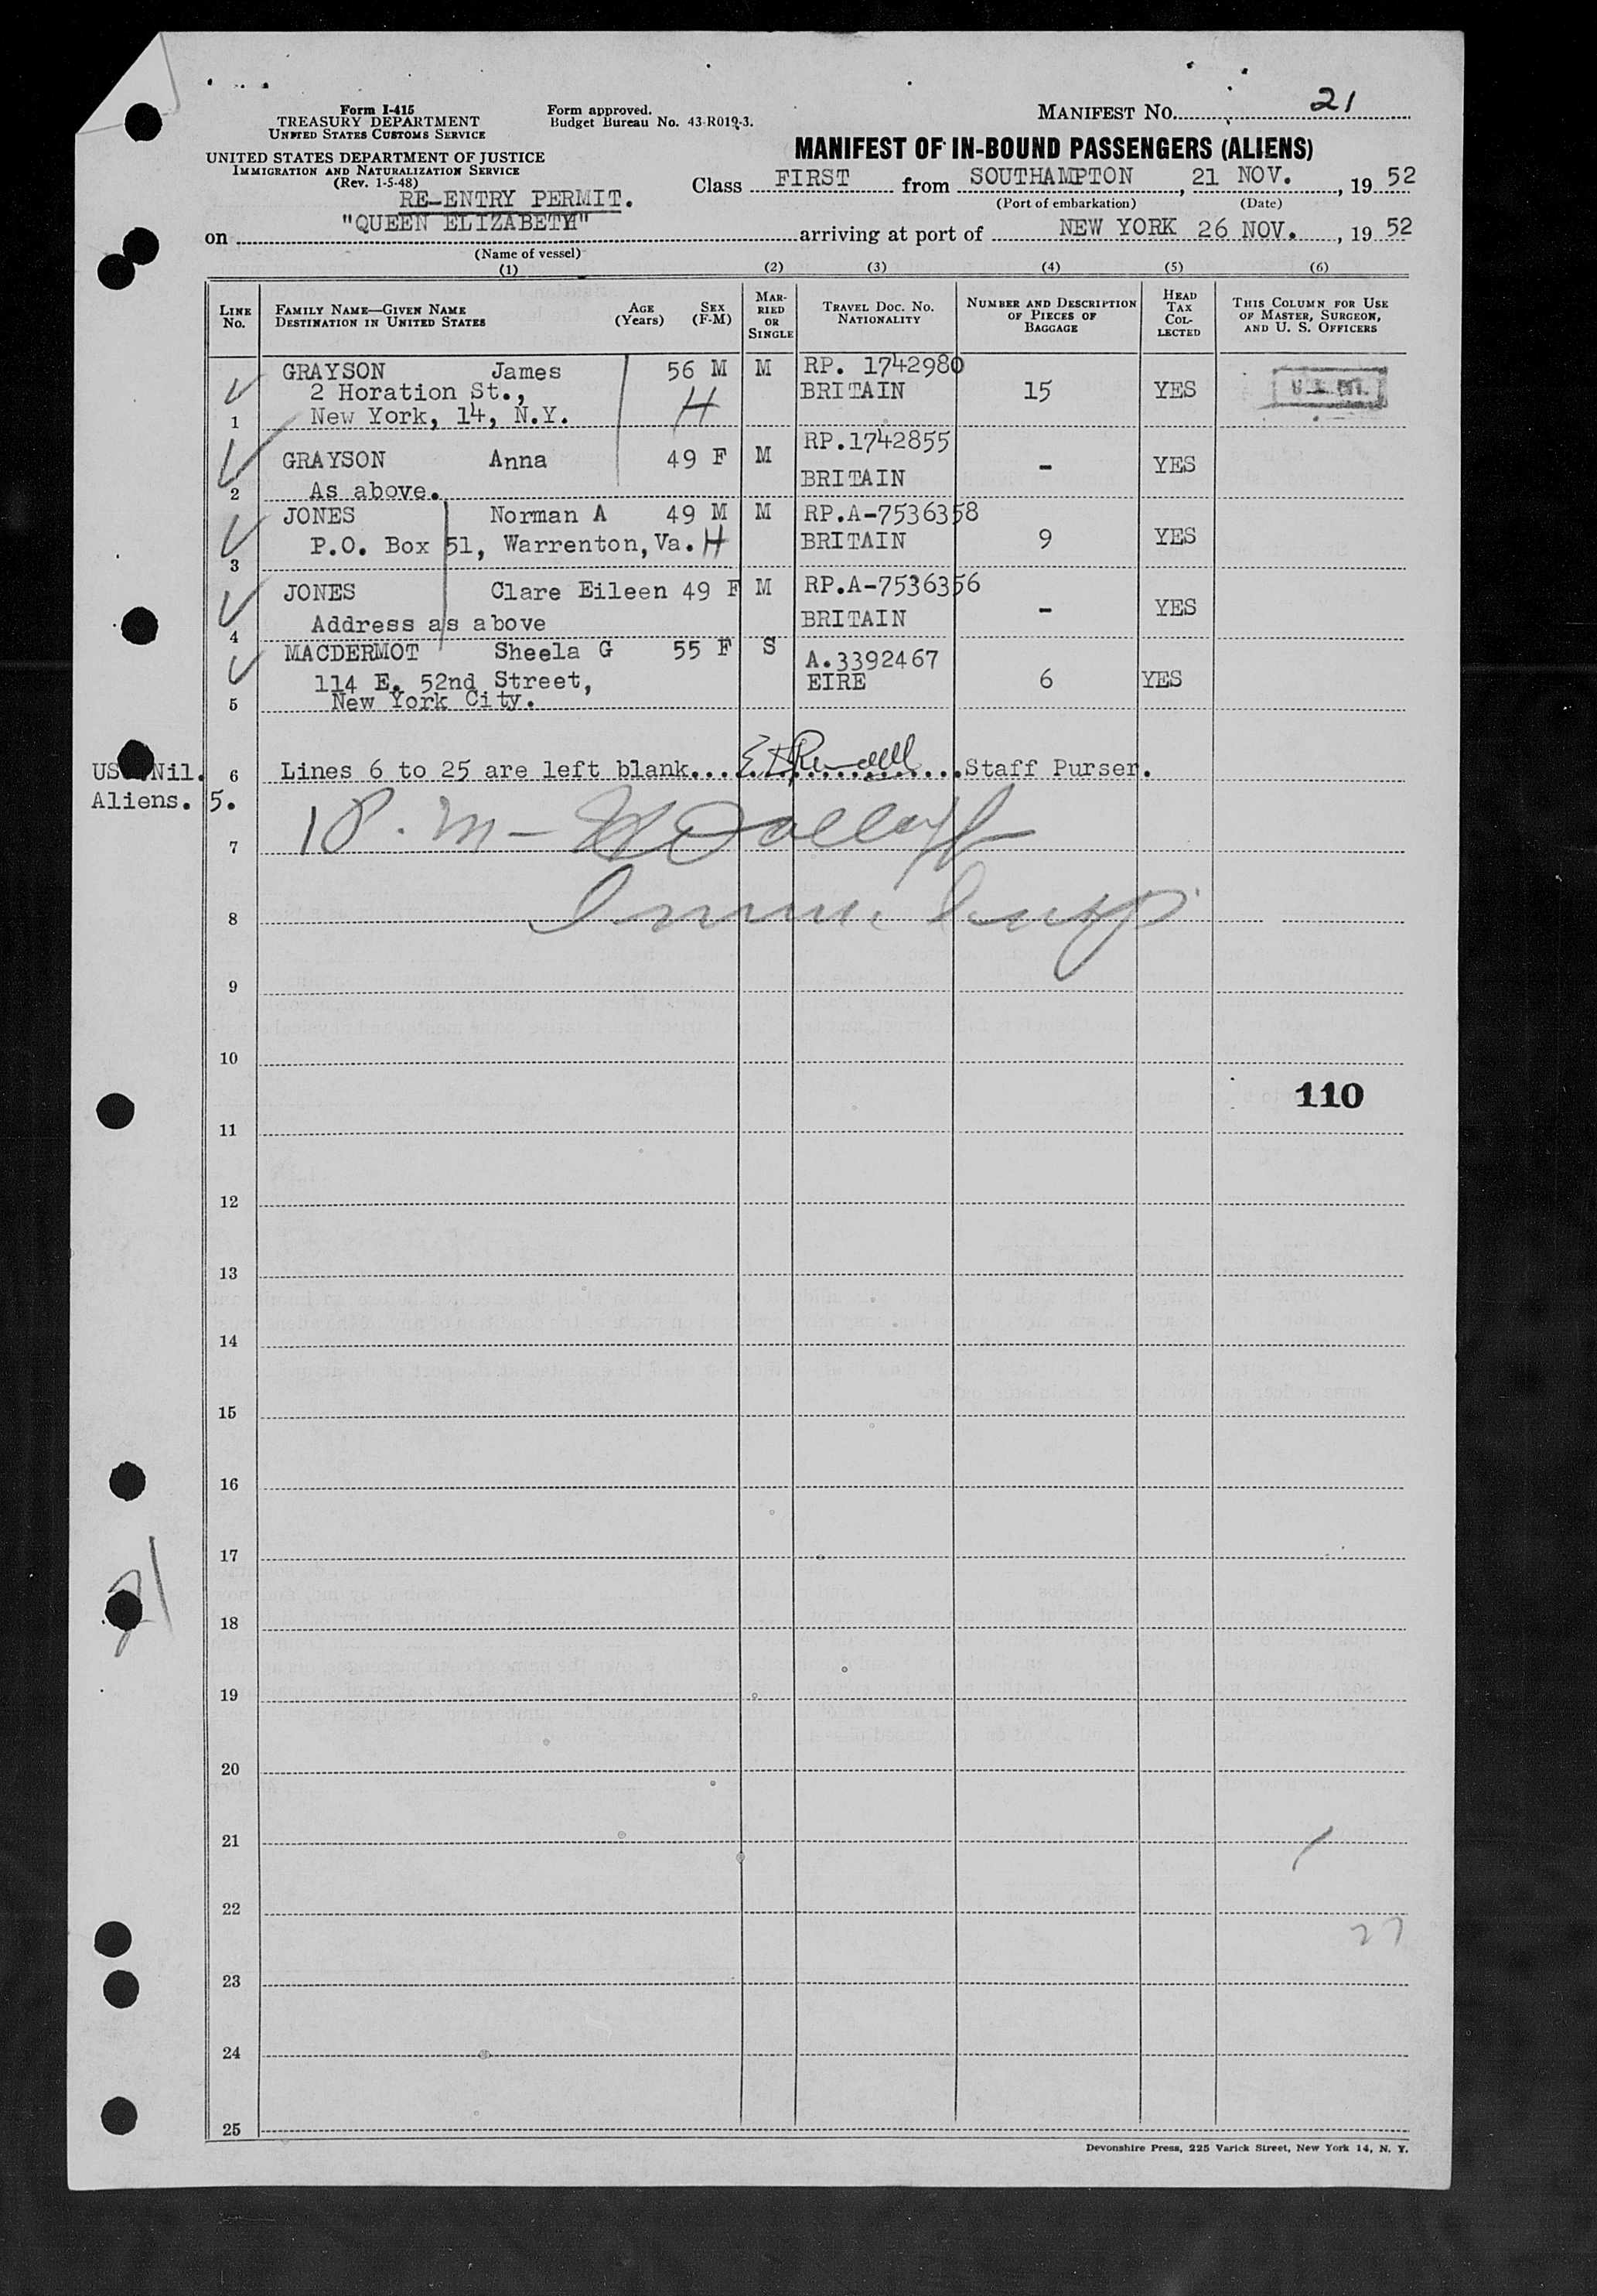 Form I-415
TREASURY DEPARTMENT
UNITED STATES CUSTOMS SERVICE
Form approved.
Budget Bureau No. 43-R019-3.
MANIFEST NO. 21
UNITED STATES DEPARTMENT OF JUSTICE
IMMIGRATION AND NATURALIZATION SERVICE
(Rev. 1-5-48)
MANIFEST OF IN-BOUND PASSENGERS (ALIENS)
Class FIRST from SOUTHAMPTON, 21 NOV., 19 52
(Port of embarkation) (Date)
RE-ENTRY PERMIT.
on "QUEEN ELIZABETH" arriving at port of NEW YORK 26 NOV., 19 52
(Name of vessel)
(1) (2) (3) (4) (5) (6)
LINE No. FAMILY NAME—GIVEN NAME DESTINATION IN UNITED STATES AGE (Years) SEX (F-M) MARRIED OR SINGLE TRAVEL DOC. NO. NATIONALITY NUMBER AND DESCRIPTION OF PIECES OF BAGGAGE HEAD TAX COLLECTED THIS COLUMN FOR USE OF MASTER, SURGEON, AND U. S. OFFICERS
GRAYSON James 56 M M RP. 1742980
2 Horation St., H BRITAIN 15 YES
1 New York, 14, N.Y.
RP.1742855
GRAYSON Anna 49 F M - YES
BRITAIN
2 As above.
JONES Norman A 49 M M RP.A-7536358
P.O. Box 51, Warrenton, Va. H BRITAIN 9 YES
3
JONES Clare Eileen 49 F M RP.A-7536356
- YES
Address as above BRITAIN
4
MACDERMOT Sheela G 55 F S A.3392467
114 E. 52nd Street, EIRE 6 YES
5 New York City.
US Nil. 6 Lines 6 to 25 are left blank. Staff Purser.
Aliens. 5.
7
8
9
10
110
11
12
13
14
15
16
17
21
18
19
20
21
22
27
23
24
25
Devonshire Press, 225 Varick Street, New York 14, N. Y.